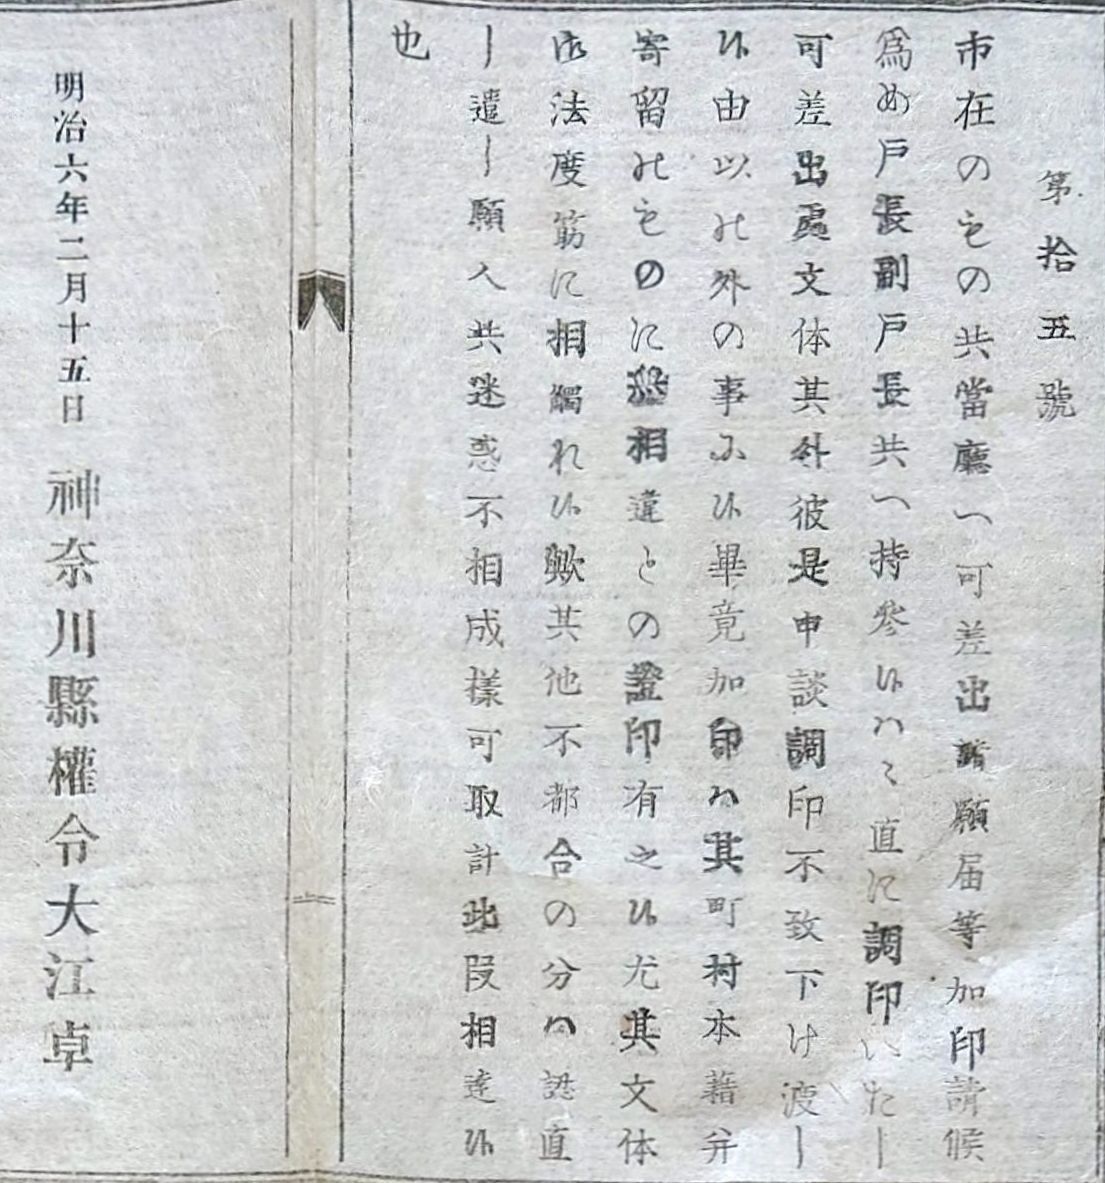 第拾五號
市在のもの共當廳へ可差出諸願届等加印請候
爲め戸長副戸長共へ持參候ハヽ直に調印いたし
可差出處文体其外彼是申談調印不致下け渡し
候由以の外の事に候畢竟加印ハ其町村本藉并
寄留のものに無相違との證印有之候尤其文体
御法度筋に相觸れ候歟其他不都合の分ハ認直
し遣し願人共迷惑不相成樣可取計此段相達候
也
明治六年二月十五日 神奈川縣權令大江卓